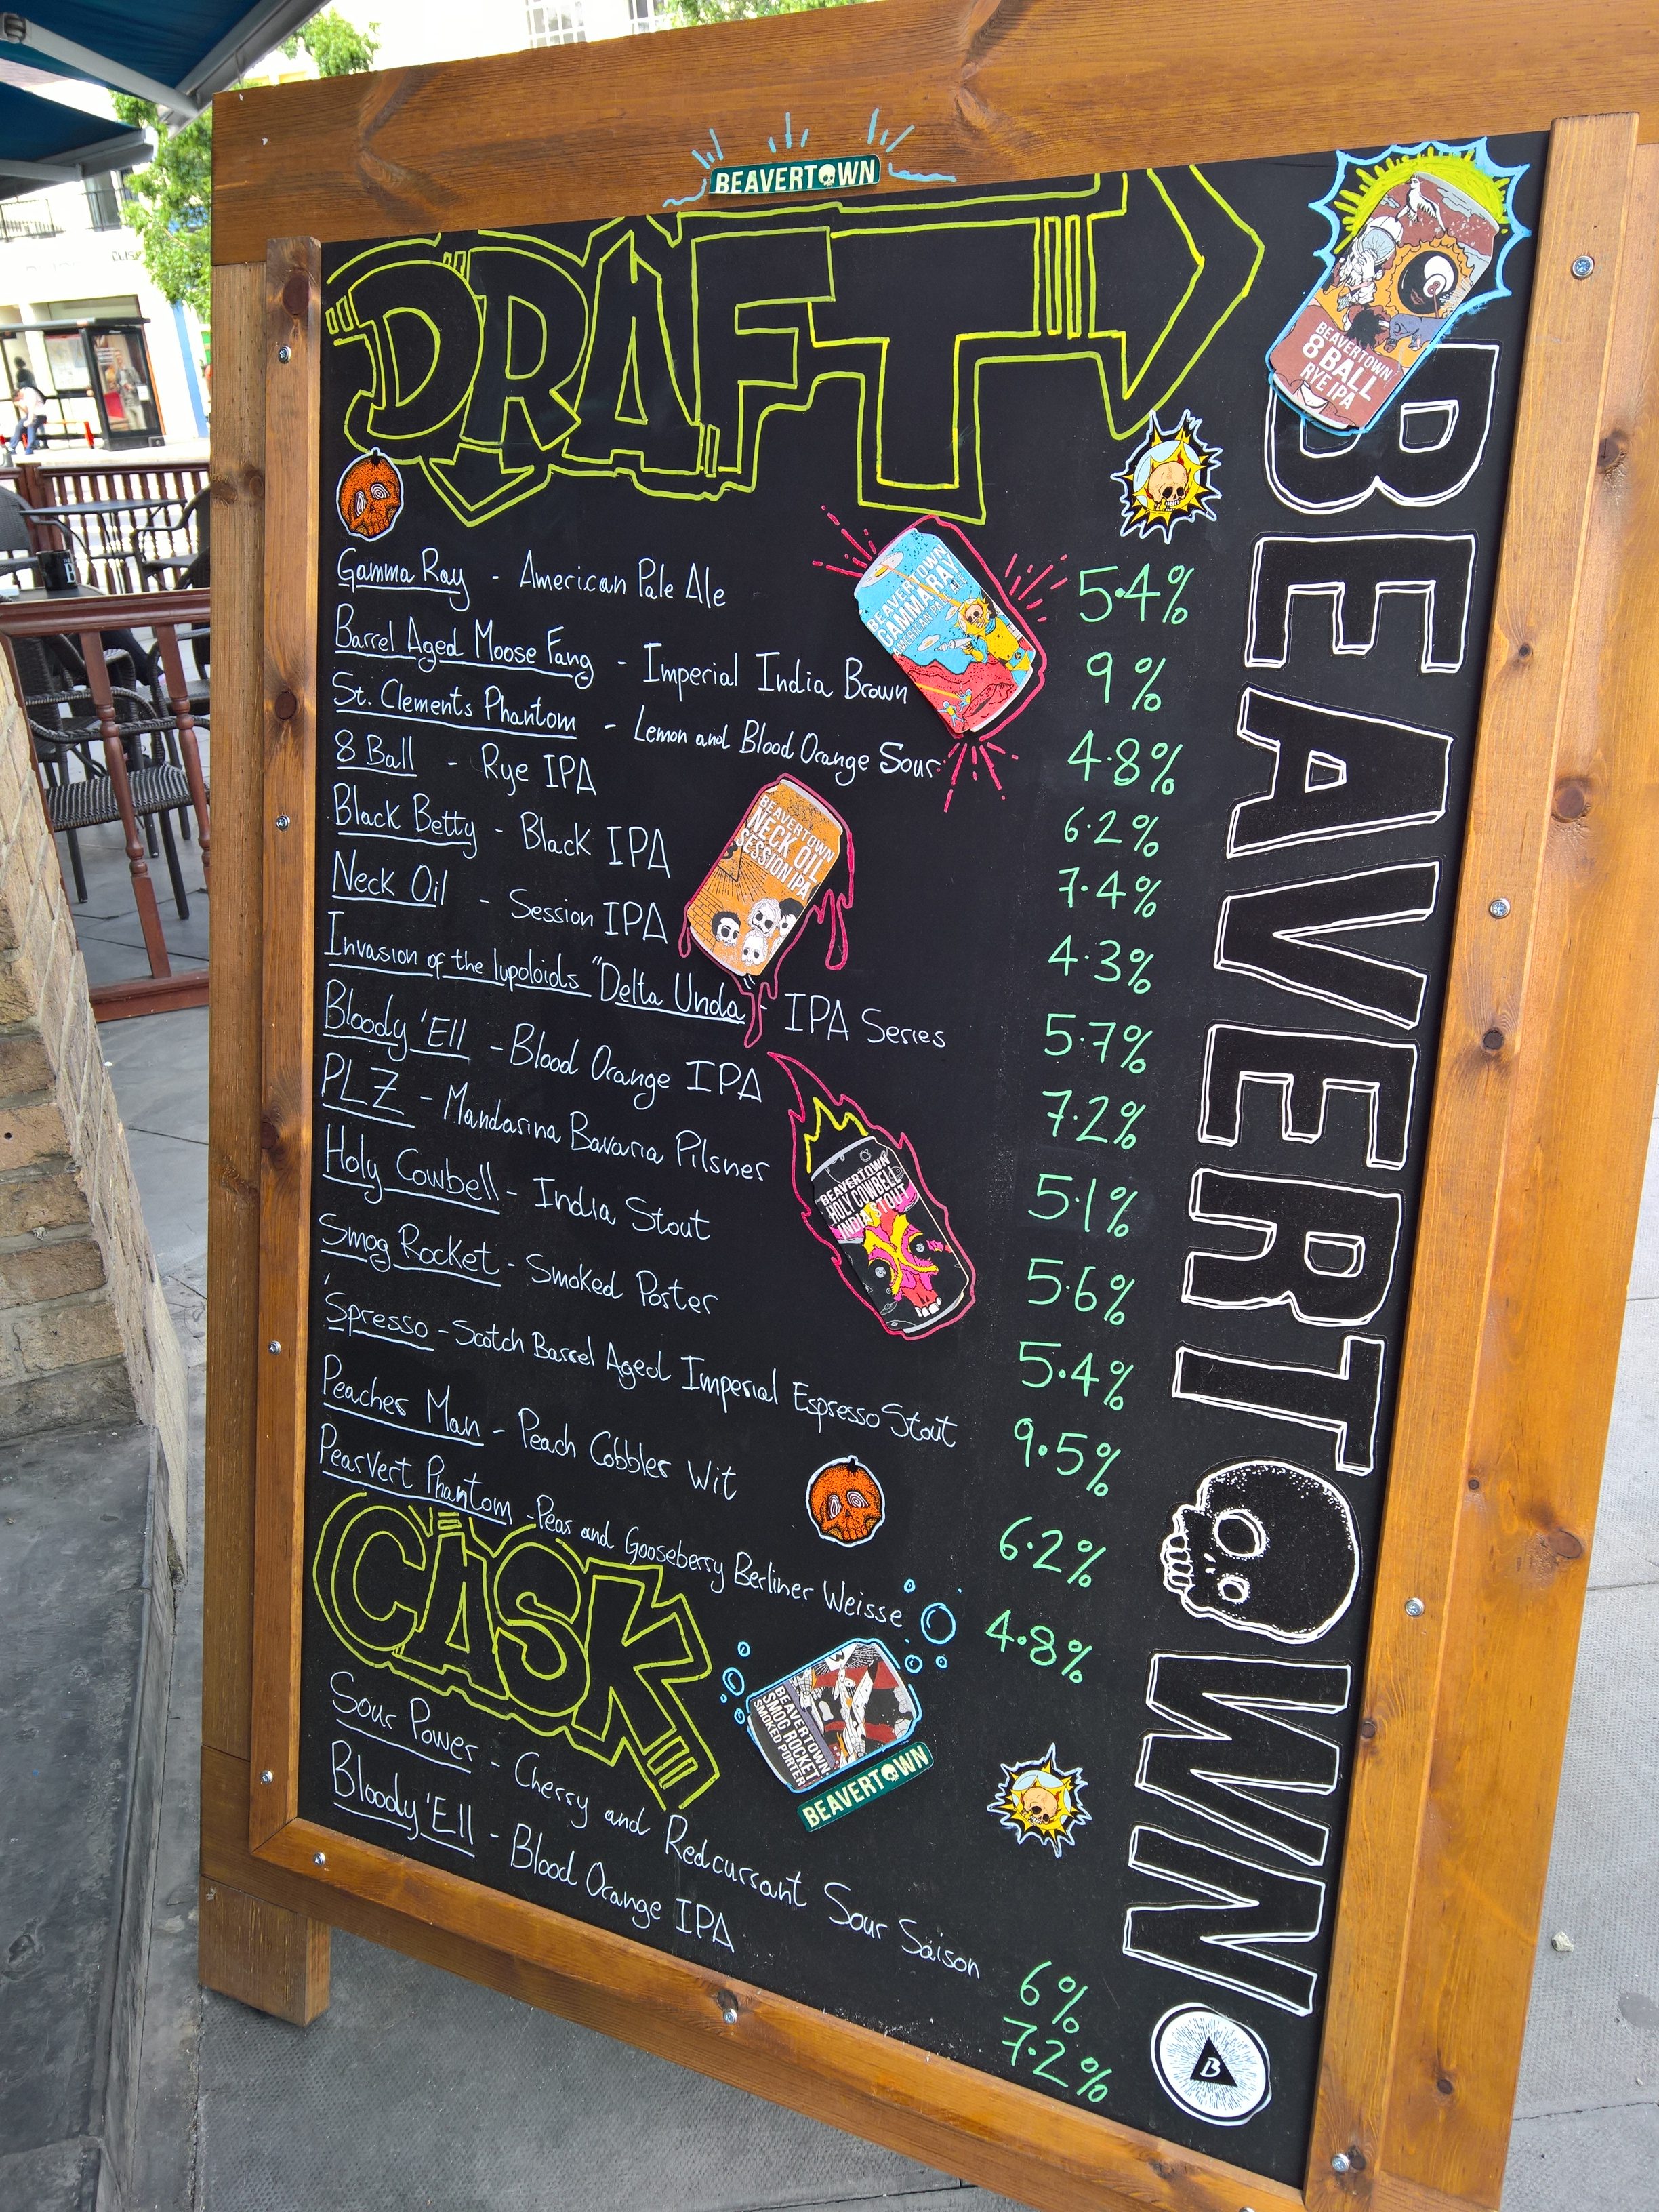 BEAVERTOWN
DRAFT
BEAVERTOWN
8 BALL
RYE IPA
Gamma Ray - American Pale Ale 5.4%
BEAVERTOWN
GAMMA RAY
AMERICAN PALE ALE
Barrel Aged Moose Fang - Imperial India Brown 9%
St. Clements Phantom - Lemon and Blood Orange Sour 4.8%
8 Ball - Rye IPA 6.2%
Black Betty - Black IPA 7.4%
BEAVERTOWN
NECK OIL
SESSION IPA
Neck Oil - Session IPA 4.3%
Invasion of the lupoloids "Delta Unda - IPA Series 5.7%
Bloody 'Ell - Blood Orange IPA 7.2%
PLZ - Mandarina Bavaria Pilsner 5.1%
Holy Cowbell - India Stout 5.6%
BEAVERTOWN
HOLY COWBELL
INDIA STOUT
Smog Rocket - Smoked Porter 5.4%
'Spresso - Scotch Barrel Aged Imperial Espresso Stout 9.5%
Peacher Man - Peach Cobbler Wit 6.2%
Pearvert Phantom - Pear and Gooseberry Berliner Weisse 4.8%
CASK
BEAVERTOWN
SMOG ROCKET
SMOKED PORTER
BEAVERTOWN
Sour Power - Cherry and Redcurrant Sour Saison 6%
Bloody 'Ell - Blood Orange IPA 7.2%
BEAVERTOWN
B